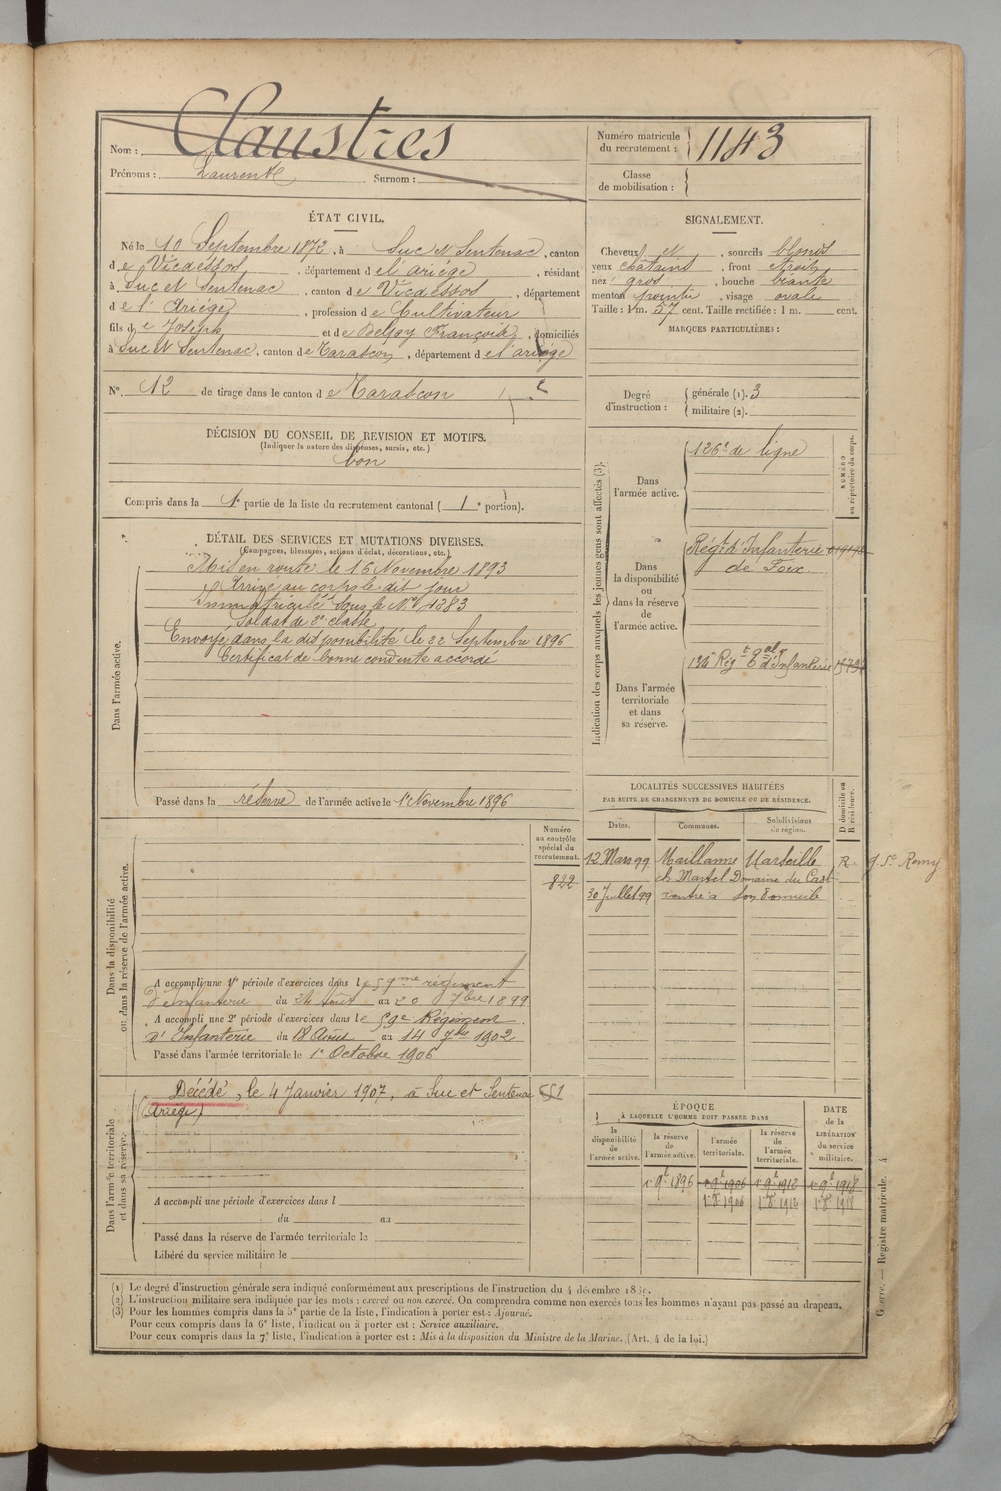 Nom : Claustres
Prénoms : Laurent Surnom :
Numéro matricule du recrutement : 1143
Classe de mobilisation :
ÉTAT CIVIL.
Né le 10 Septembre 1872, à Suc et Sentenac, canton
de Vicdessos, département de l'ariége, résidant
à Suc et Sentenac, canton de Vicdessos, département
de l'Ariége, profession de Cultivateur
fils de Joseph et de Delpy Françoise, domiciliés
à Suc et Sentenac, canton de Tarascon, département de l'ariége
N°. 12 de tirage dans le canton de Tarascon
DÉCISION DU CONSEIL DE REVISION ET MOTIFS.
(Indiquer la nature des dispenses, sursis, etc.)
bon
Compris dans la 1e partie de la liste du recrutement cantonal ( 1e portion).
SIGNALEMENT.
Cheveux et , sourcils blonds
yeux chatains , front etroit
nez gros , bouche béante
menton pointu , visage ovale
Taille : 1 m. 57 cent. Taille rectifiée : 1 m. cent.
MARQUES PARTICULIÈRES :
Degré d'instruction :
générale (1). 3
militaire (2).
DÉTAIL DES SERVICES ET MUTATIONS DIVERSES.
(Campagnes, blessures, actions d'éclat, décorations, etc.)
Dans l'armée active.
Mis en route le 16 Novembre 1893
Arrivé au corps le dit jour
Immatriculé sous le N° 4283
Soldat de 2e classe
Envoyé dans la disponibilité le 22 Septembre 1896
Certificat de bonne conduite accordé
Passé dans la réserve de l'armée active le 1er Novembre 1896
Indication des corps auxquels les jeunes gens sont affectés (3).
NUMÉRO au répertoire du corps.
Dans l'armée active.
126e de ligne
Dans la disponibilité ou dans la réserve de l'armée active.
Régt d'Infanterie
de Foix
Dans l'armée territoriale et dans sa réserve.
134e Régt tal d'Infanterie
LOCALITÉS SUCCESSIVES HABITÉES
PAR SUITE DE CHANGEMENTS DE DOMICILE OU DE RÉSIDENCE.
Dates. Communes. Subdivisions de région. D domicile ou R résidence.
12 Mars 99 Maillanne Marseille R. g. St Remy
ch Martel Domaine du Cast
30 Juillet 99 rentré à son domicile
Dans la disponibilité ou dans la réserve de l'armée active.
Numéro au contrôle spécial du recrutement.
822
A accompli une 1re période d'exercices dans le 59me régiment
d'Infanterie du 24 Août au 20 7bre 1899
A accompli une 2e période d'exercices dans le 59e Régiment
d'Infanterie du 18 Août au 14 7bre 1902
Passé dans l'armée territoriale le 1er Octobre 1906
Dans l'armée territoriale et dans sa réserve.
Décédé, le 4 Janvier 1907, à Suc et Sentenac 551
(Ariége)
A accompli une période d'exercices dans l
du au
Passé dans la réserve de l'armée territoriale le
Libéré du service militaire le
ÉPOQUE
À LAQUELLE L'HOMME DOIT PASSER DANS
la disponibilité de l'armée active.
la réserve de l'armée active.
l'armée territoriale.
la réserve de l'armée territoriale.
DATE de la LIBÉRATION du service militaire.
1er 9bre 1896 1er 9bre 1906 1er 9bre 1912 1er 9bre 1918
1er 8bre 1906 1er 8bre 1912 1er 8bre 1918
(1) Le degré d'instruction générale sera indiqué conformément aux prescriptions de l'instruction du 4 décembre
(2) L'instruction militaire sera indiquée par les mots : exercé ou non exercé. On comprendra comme non exercés tous les hommes n'ayant pas passé au drapeau.
(3) Pour les hommes compris dans la 5e partie de la liste, l'indication à porter est : Ajourné.
Pour ceux compris dans la 6e liste, l'indication à porter est : Service auxiliaire.
Pour ceux compris dans la 7e liste, l'indication à porter est : Mis à la disposition du Ministre de la Marine. (Art. 4 de la loi.)
Guerre. — Registre matricule. 4